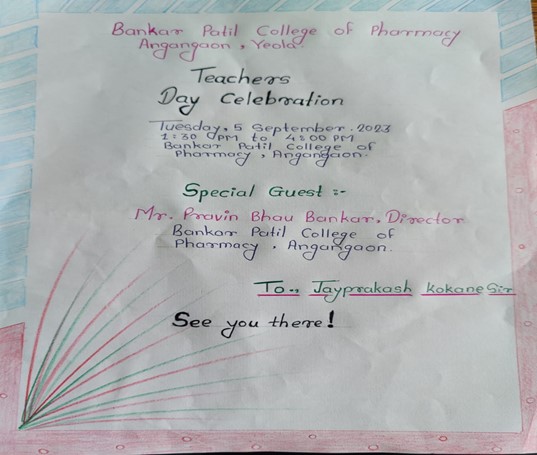 Bankar Patil College of Pharmacy
Angangaon, Yeola
Teachers
Day Celebration
Tuesday, 5 September. 2023
1:30 PM to 4:00 PM
Bankar Patil College of
Pharmacy, Angangaon.
Special Guest :-
Mr. Pravin Bhau Bankar. Director
Bankar Patil College of
Pharmacy. Angangaon.
To., Jayprakash Kokane Sir
See you there!